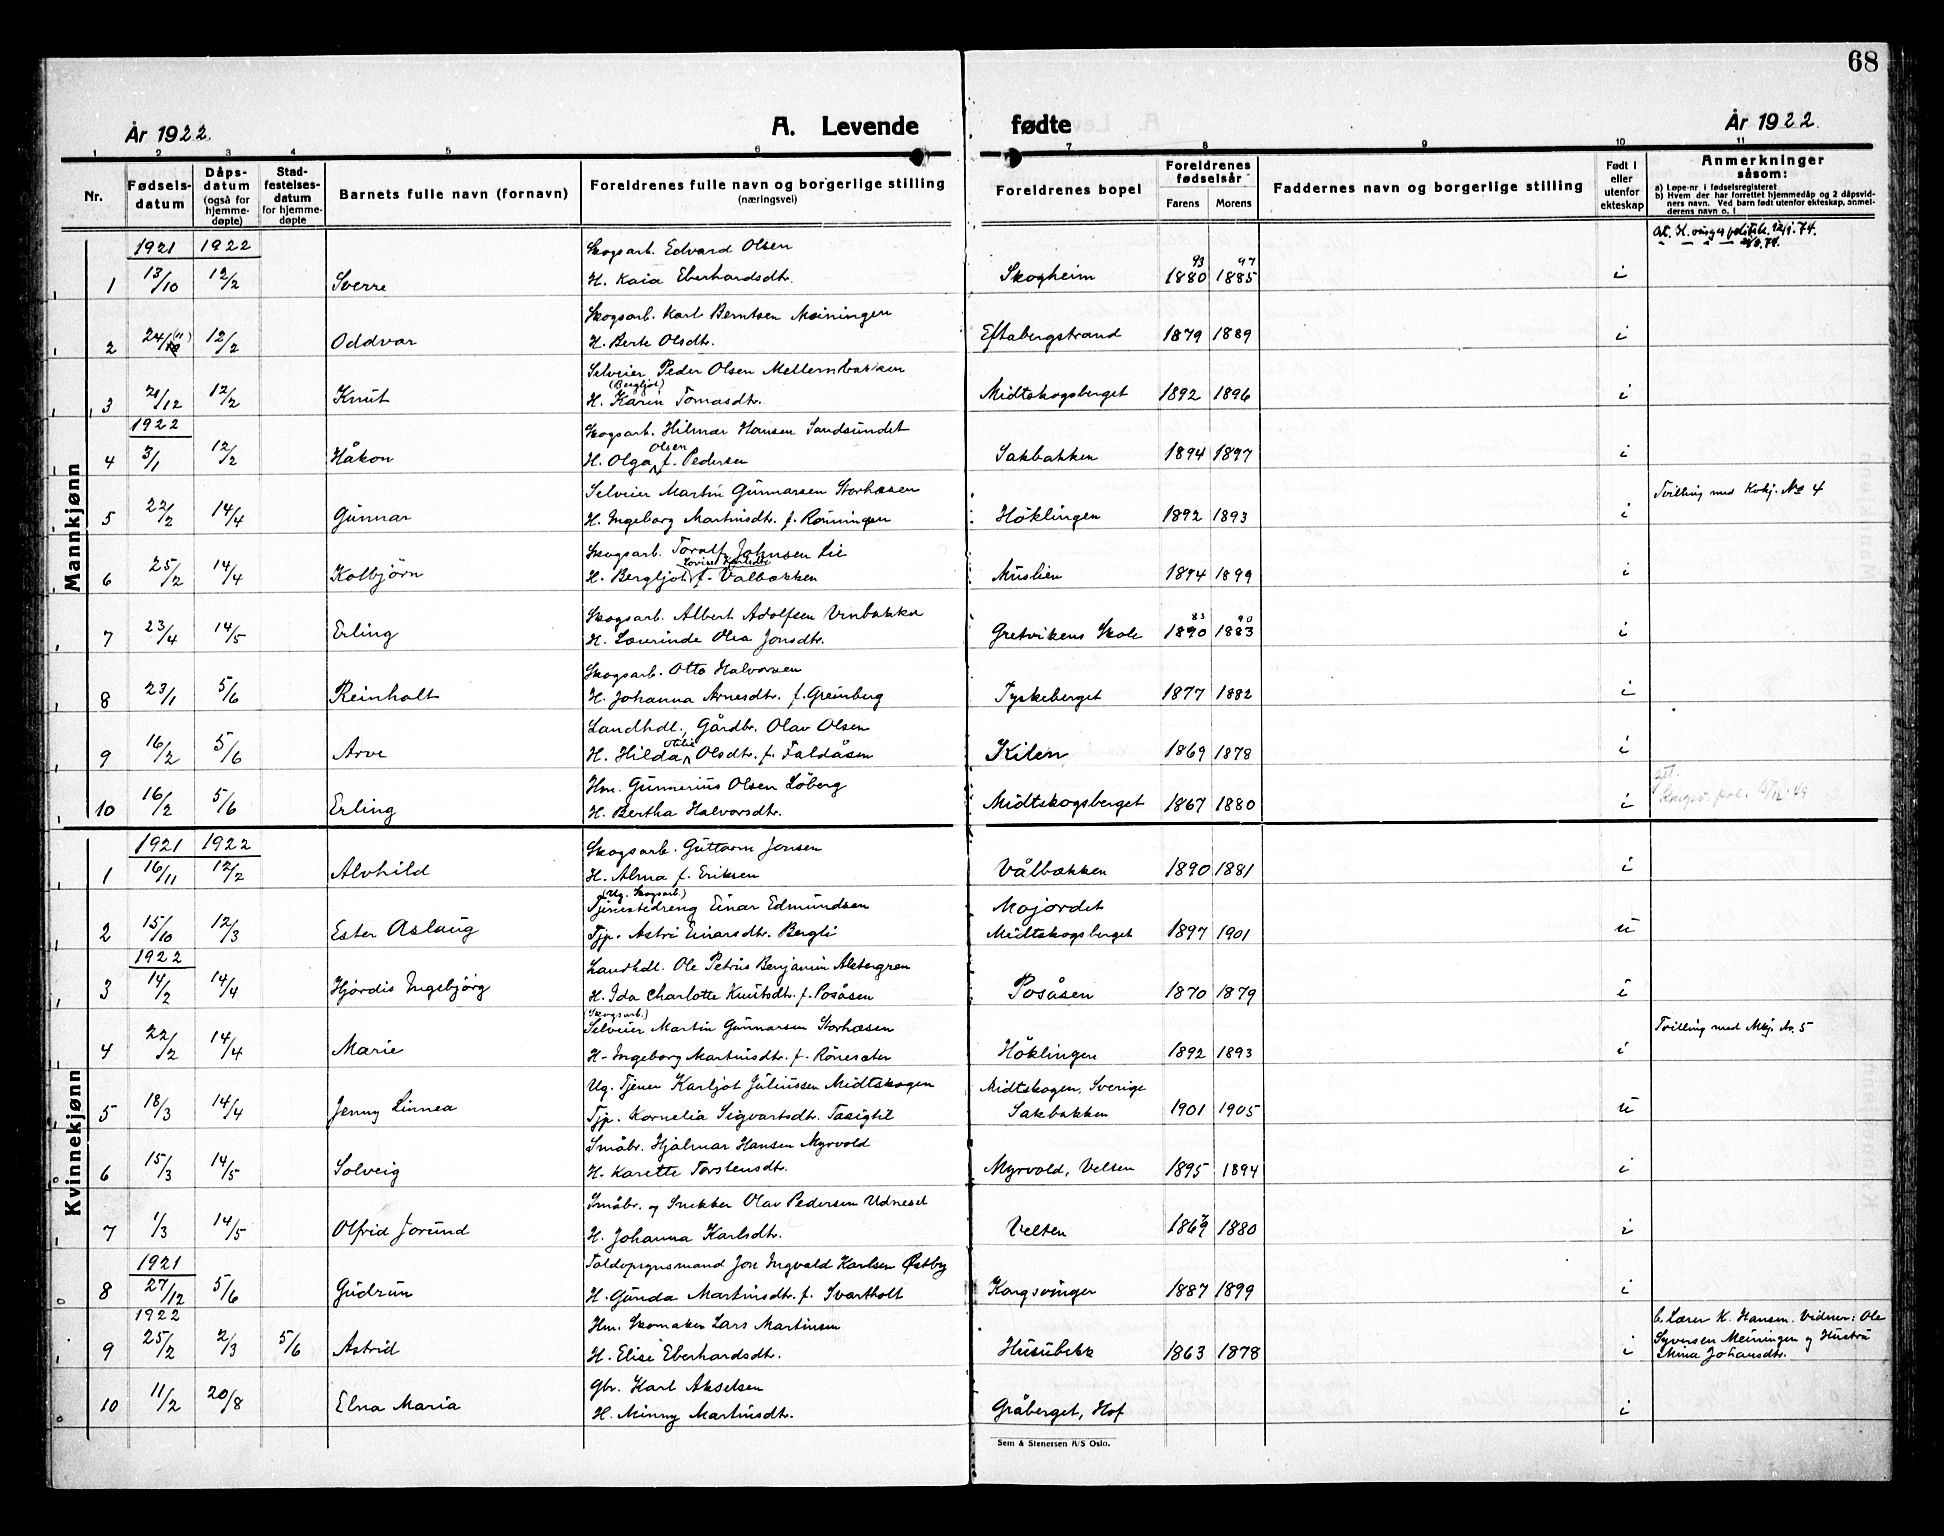 68
År 1922.
A. Levende fødte
År 1922.
1 2 3 4 5 6 7 8 9 10 11
Nr.
Fødsels-datum
Dåps-datum (også for hjemme-døpte)
Stad-festelses-datum for hjemme-døpte
Barnets fulle navn (fornavn)
Foreldrenes fulle navn og borgerlige stilling (næringsvei)
Foreldrenes bopel
Foreldrenes fødselsår
Farens Morens
Faddernes navn og borgerlige stilling
Født i eller utenfor ekteskap
Anmerkninger såsom:
a) Løpe-nr i fødselsregisteret
b) Hvem der har forrettet hjemmedåp og 2 dåpsvidners navn. Ved barn født utenfor ekteskap, anmelderens navn o. l
Mannkjønn
1921 1922 Skogsarb. Edvard Olsen
1 13/10 12/2 Sverre H. Kaia Eberhardsdtr. Skogheim 93 1880 97 1885 i
Skogsarb. Karl Berntsen Meiningen
2 24/10 (11) 12/2 Oddvar H. Berte Olsdtr. Eftabergstrand 1879 1889 i
Selveier Peder Olsen Mellembakken
3 21/12 12/2 Knut H. Karin (Bergljot) Tomasdtr. Midtskogsberget 1892 1896 i
1922 Skogsarb. Hilmar Hansen Sandsundet
4 3/1 12/2 Håkon H. Olga Olsen f. Pedersen Sakbakken 1894 1897 i
Selveier Martin Gunnarsen Storhaesen Tvilling med Kvkj. No 4
5 22/2 14/4 Gunnar H. Ingeborg Martinsdtr. f. Rønningen Høklingen 1892 1893 i
Skogsarb. Toralf Johnsen Lie
6 25/2 14/4 Kolbjørn H. Bergljot Lovise Karlsdtr f. Valbakken Muslien 1894 1899 i
Skogsarb. Albert Adolfsen Vinbakka
7 23/4 14/5 Erling H. Laurinde Olea Jonsdtr. Gretvikens Skole 83 1890 90 1883 i
Skogsarb. Otto Halvorsen
8 23/1 5/6 Reinholt H. Johanna Arnesdtr. f. Greinberg Tyskeberget 1877 1882 i
Landhdl. Gårdbr. Olav Olsen
9 16/2 5/6 Arve H. Hilda Otilie Olsdtr. f. Faldåsen Kilen 1869 1878 i
Hm. Gunnerius Olsen Løberg
10 16/2 5/6 Erling H. Bertha Halvorsdtr. Midtskogsberget 1867 1880 i
Kvinnekjønn
1921 1922 Skogsarb. Guttorm Jonsen
1 16/11 12/2 Alvhild H. Alma f. Eriksen Vålbakken 1890 1881 i
(Ug. Skogsarb.)
Tjenestedreng Einar Edmundsen Mojordet
2 15/10 12/3 Ester Aslaug Tjp. Astri Einarsdtr. Bergli Midtskogsberget 1897 1901 u
1922 Landhdl. Ole Petrus Benjamin Alstergren
3 14/2 14/4 Hjørdis Ingebjørg H. Ida Charlotte Knutsdtr. f. Posåsen Posåsen 1870 1879 i
(Skogsarb.)
Selveier Martin Gunnarsen Storhaesen Tvilling med Mkj. No. 5
4 22/2 14/4 Marie H. Ingeborg Martinsdtr. f. Rønesæter Høklingen 1892 1893 i
Ug. Tjener Karljot Juliussen Midtskogen Midtskogen, Sverige
5 18/3 14/4 Jenny Linnea Tjp. Kornelia Sigvartsdtr. Tasigtil Sakbakken 1901 1905 u
Småbr. Hjalmar Hansen Myrvold
6 15/3 14/5 Solveig H. Karette Torstensdtr. Myrvold, Velsen 1895 1894 i
Småbr. og Snekker Olav Pedersen Udneset
7 1/3 14/5 Olfrid Jorund H. Johanna Karlsdtr. Velten 1869 1880 i
1921 Toldopsynsmand Jon Ingvald Karlsen Østby
8 27/12 5/6 Gudrun H. Gunda Martinsdtr. f. Svartholt Kongsvinger 1887 1899 i
1922 Hm. Skomaker Lars Martinsen b. Lærer K. Hansen. Vidner: Ole
9 25/2 2/3 5/6 Astrid H. Elise Eberhardsdtr. Husubekk 1863 1878 i Syversen Meiningen og Hustru
Mina Johansdtr.
Gbr. Karl Akselsen
10 11/2 20/8 Elna Maria H. Minny Martinsdtr. Gråberget, Hof i
Sem & Stenersen A/S Oslo.